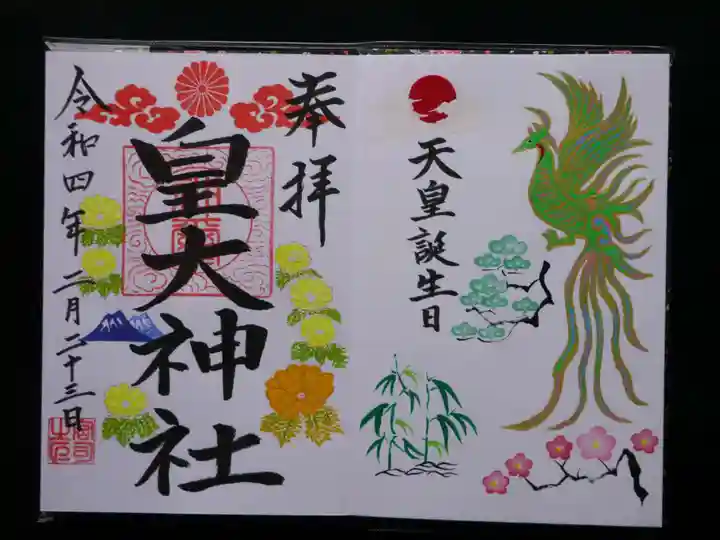 天皇誕生日
奉拝
皇大神社
令和四年二月二十三日